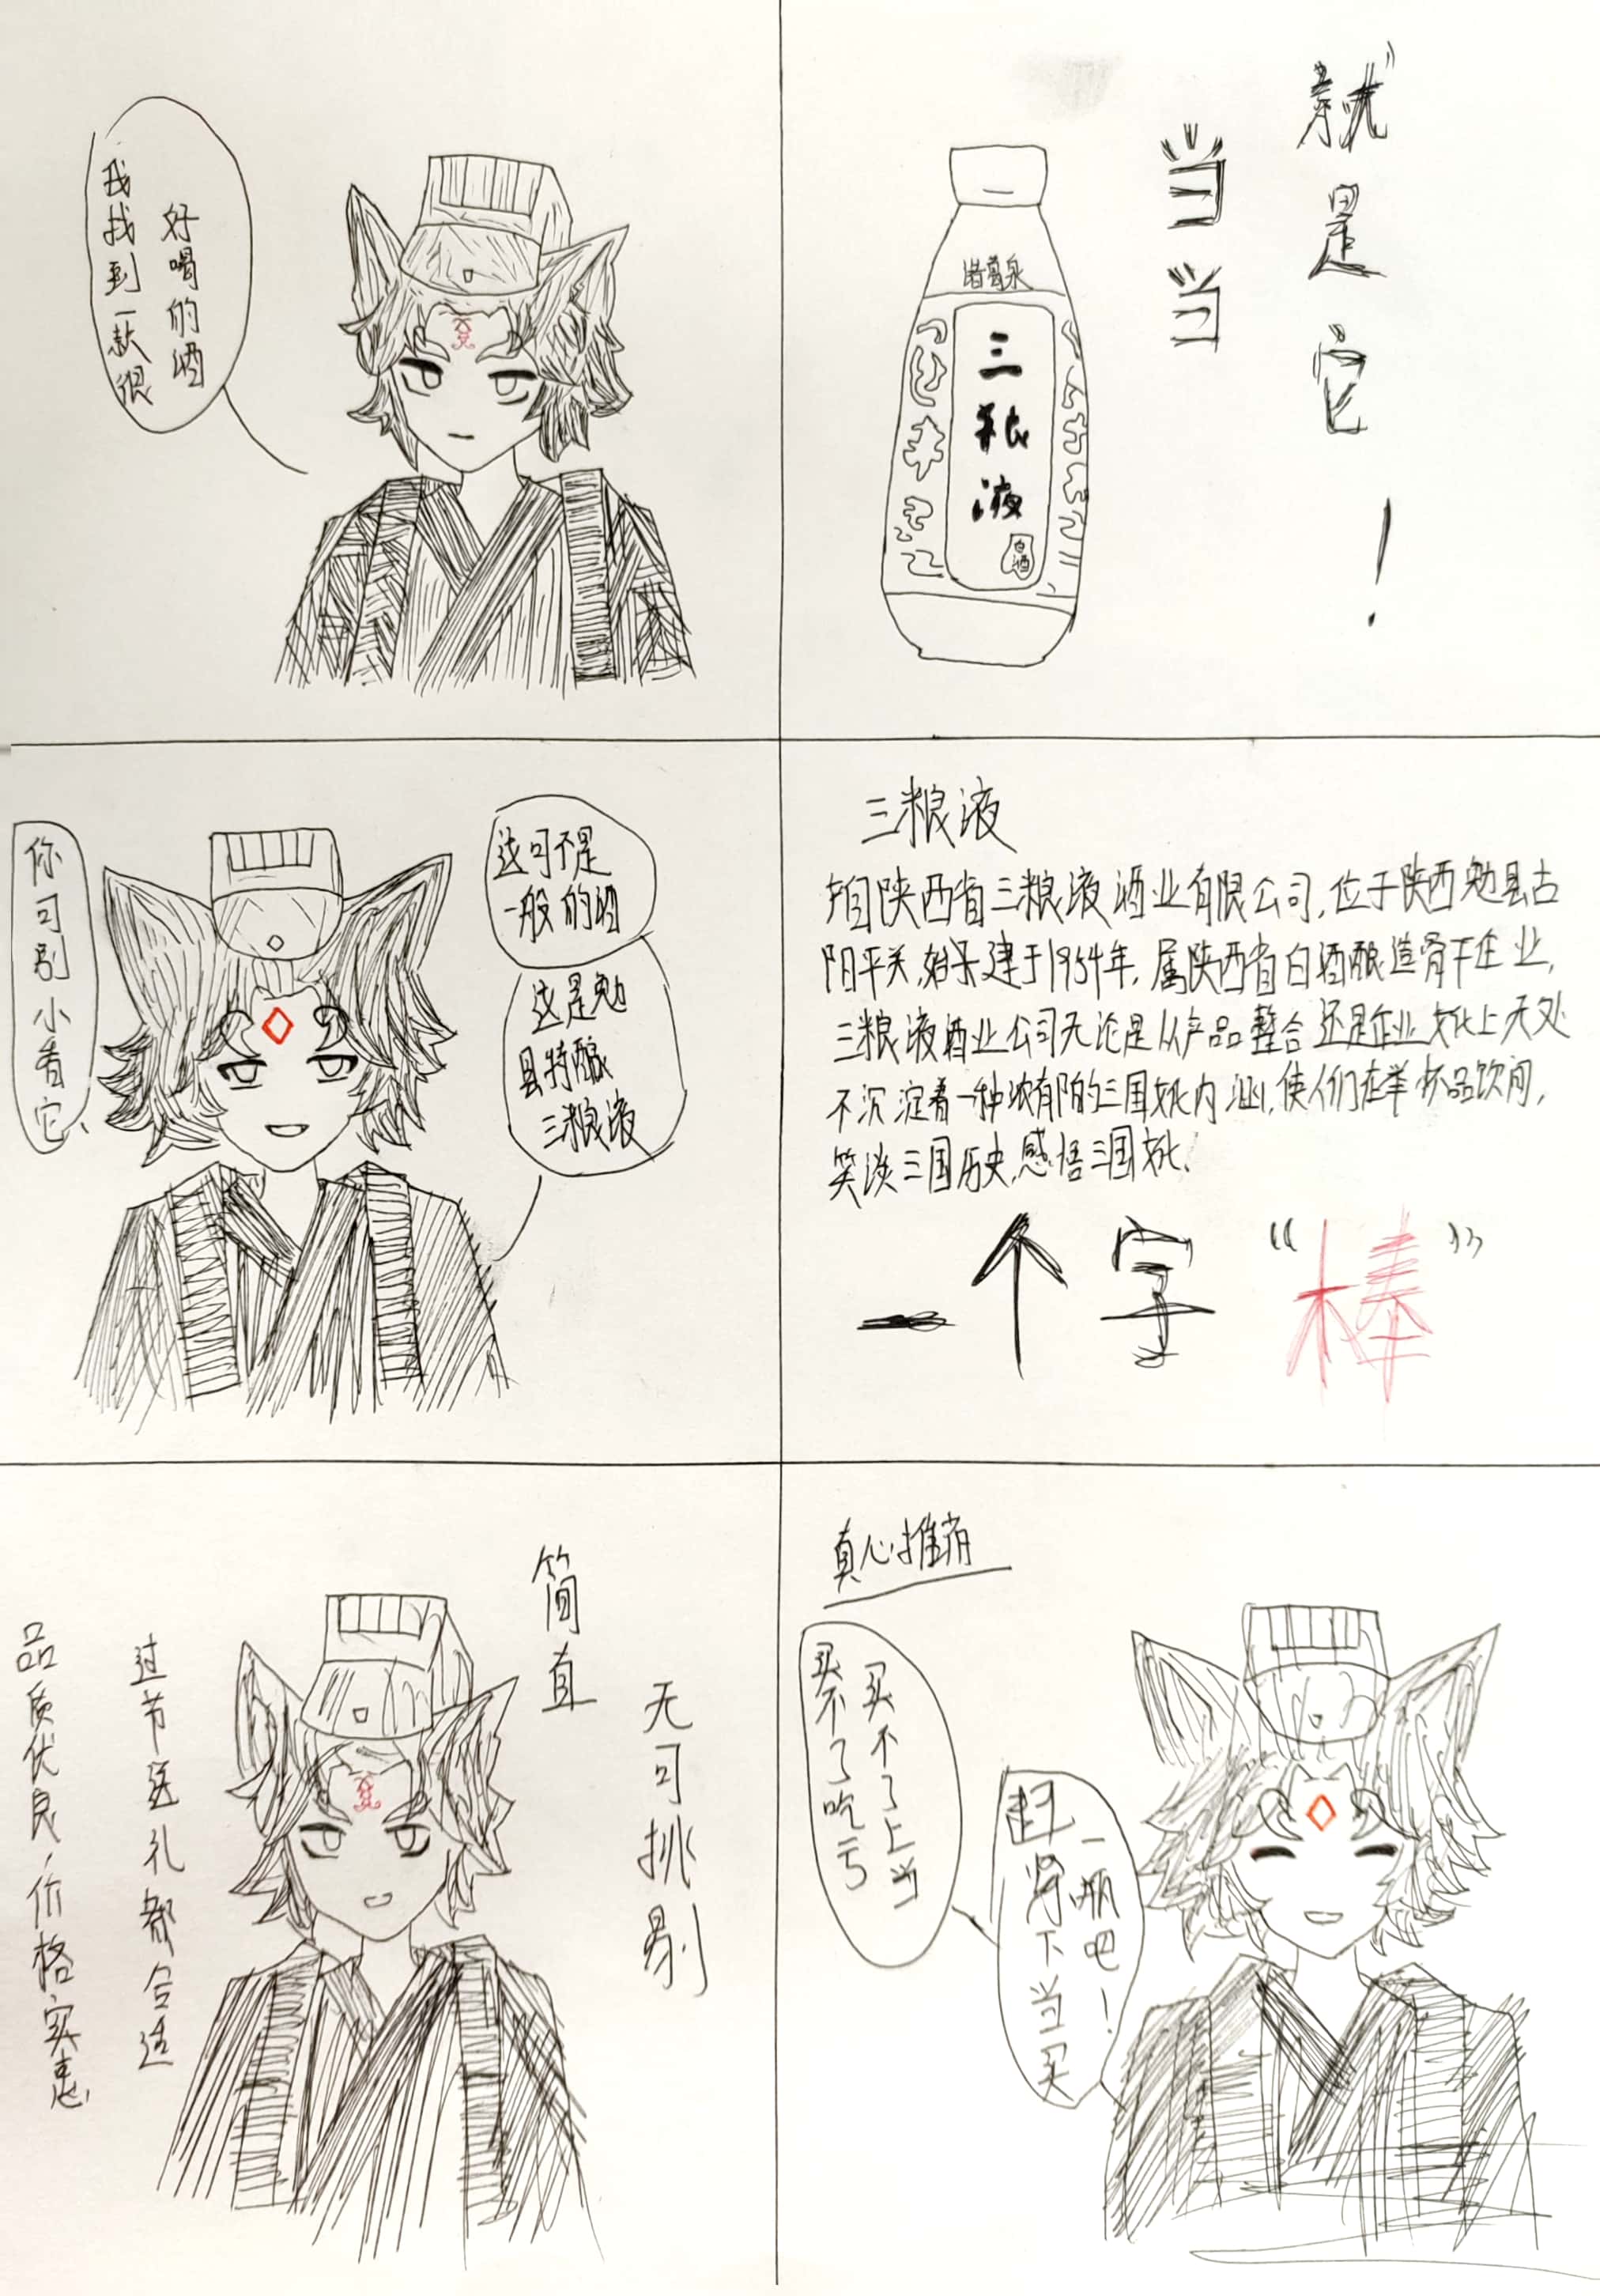 我找到一款很
好喝的酒
当当
就是它!
诸葛泉
三粮液
白酒
你可别小看它、
这可不是
一般的酒
这是勉
县特酿
三粮液
三粮液
陕西省三粮液酒业有限公司,位于陕西勉县古
阳平关,始建于1954年,属陕西省白酒酿造骨干企业,
三粮液酒业公司无论是从产品整合还是企业文化上无处
不沉淀着一种浓郁的三国文化内涵,使人们在举杯品饮间,
笑谈三国历史,感悟三国文化、
一个字“棒”
简直
无可挑剔
过节送礼都合适
品质优良,价格实惠、
真心推销
买不了吃亏
买不了上当
赶紧下当买
一瓶吧!